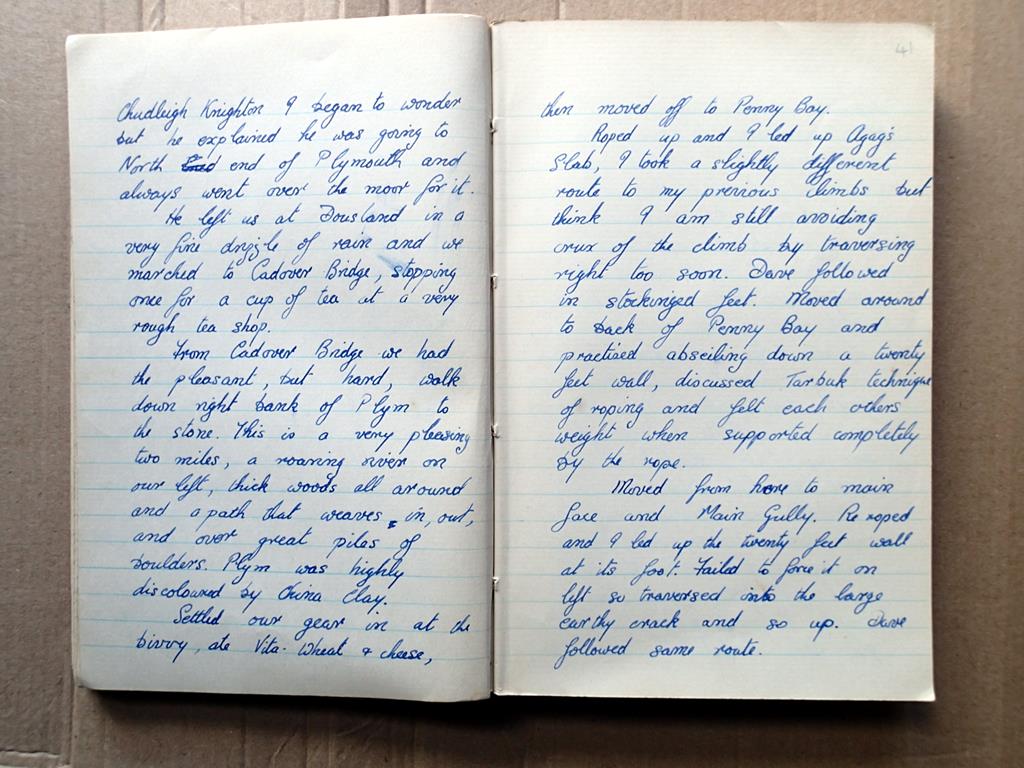 Chudleigh Knighton I began to wonder
but he explained he was going to
North end of Plymouth and
always went over the moor for it.
He left us at Dousland in a
very fine drizzle of rain and we
marched to Cadover Bridge, stopping
once for a cup of tea at a very
rough tea shop.
From Cadover Bridge we had
the pleasant, but hard, walk
down right bank of Plym to
the stone. This is a very pleasing
two miles, a roaring river on
our left, thick woods all around
and a path that weaves, in, out,
and over great piles of
boulders. Plym was highly
discoloured by China Clay.
Settled our gear in at the
bivvy, ate Vita-Wheat & cheese,
41
then moved off to Penny Bay.
Roped up and I led up Agag's
Slab, I took a slightly different
route to my previous climbs but
think I am still avoiding
crux of the climb by traversing
right too soon. Dave followed
in stockinged feet. Moved around
to back of Penny Bay and
practised abseiling down a twenty
feet wall, discussed Tarbuk technique
of roping and felt each others
weight when supported completely
by the rope.
Moved from here to main
face and Main Gully. Re roped
and I led up the twenty feet wall
at its foot. Failed to force it on
left so traversed into the large
earthy crack and so up. Dave
followed same route.